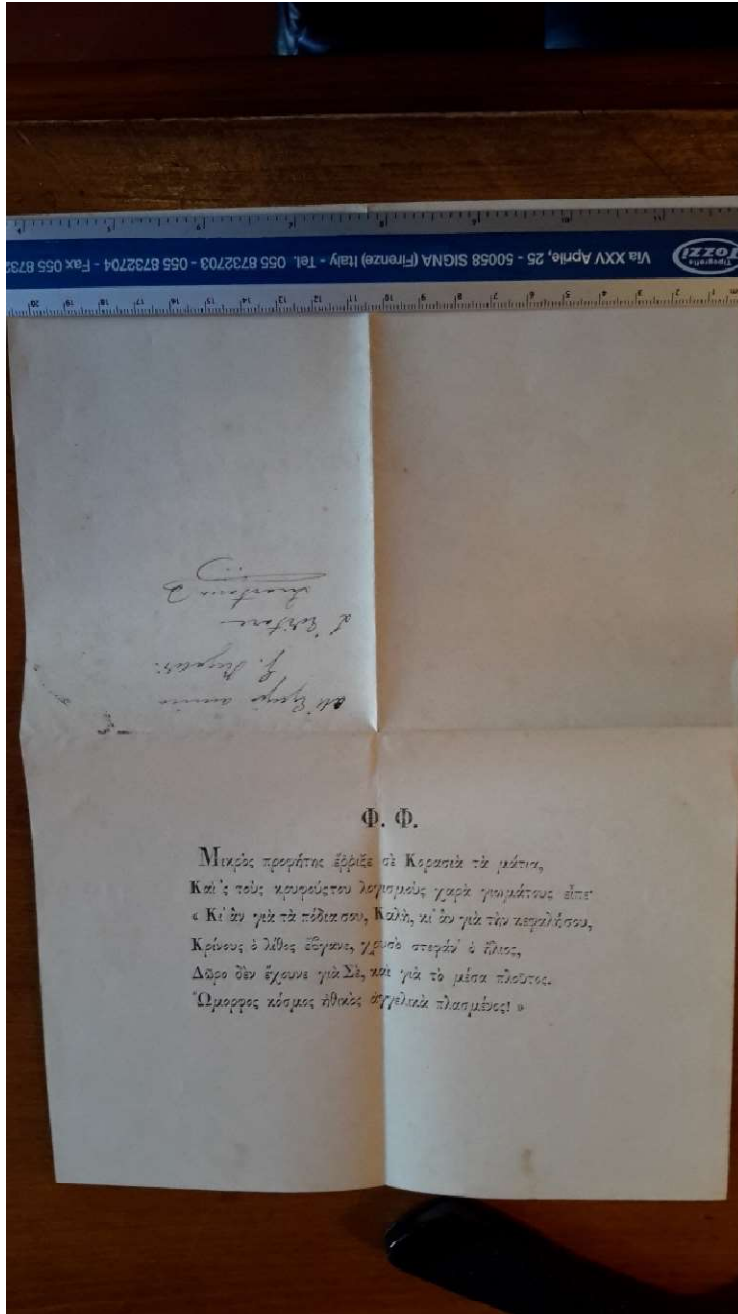 Tipografia
TOZZI
Via XXV Aprile, 25 - 50058 SIGNA (Firenze) Italy - Tel. 055 8732703 - 055 8732704 - Fax 055 8732
All' amico
L'Editore
Φ. Φ.
Μικρὸς προφήτης ἔῤῥιξε σὲ Κορασιὰ τὰ μάτια,
Καὶ 'ς τοὺς κρυφούςτου λογισμοὺς χαρὰ γιομάτους εἶπε·
« Κι' ἂν γιὰ τὰ πόδια σου, Καλὴ, κι' ἂν γιὰ τὴν κεφαλήσου,
Κρίνους ὁ λίθος ἔβγανε, χρυσὸ στεφάν' ὁ ἥλιος,
Δῶρο δὲν ἔχουνε γιὰ Σὲ, καὶ γιὰ τὸ μέσα πλοῦτος.
Ὤμορφος κόσμος ἠθικὸς ἀγγελικὰ πλασμένος! »